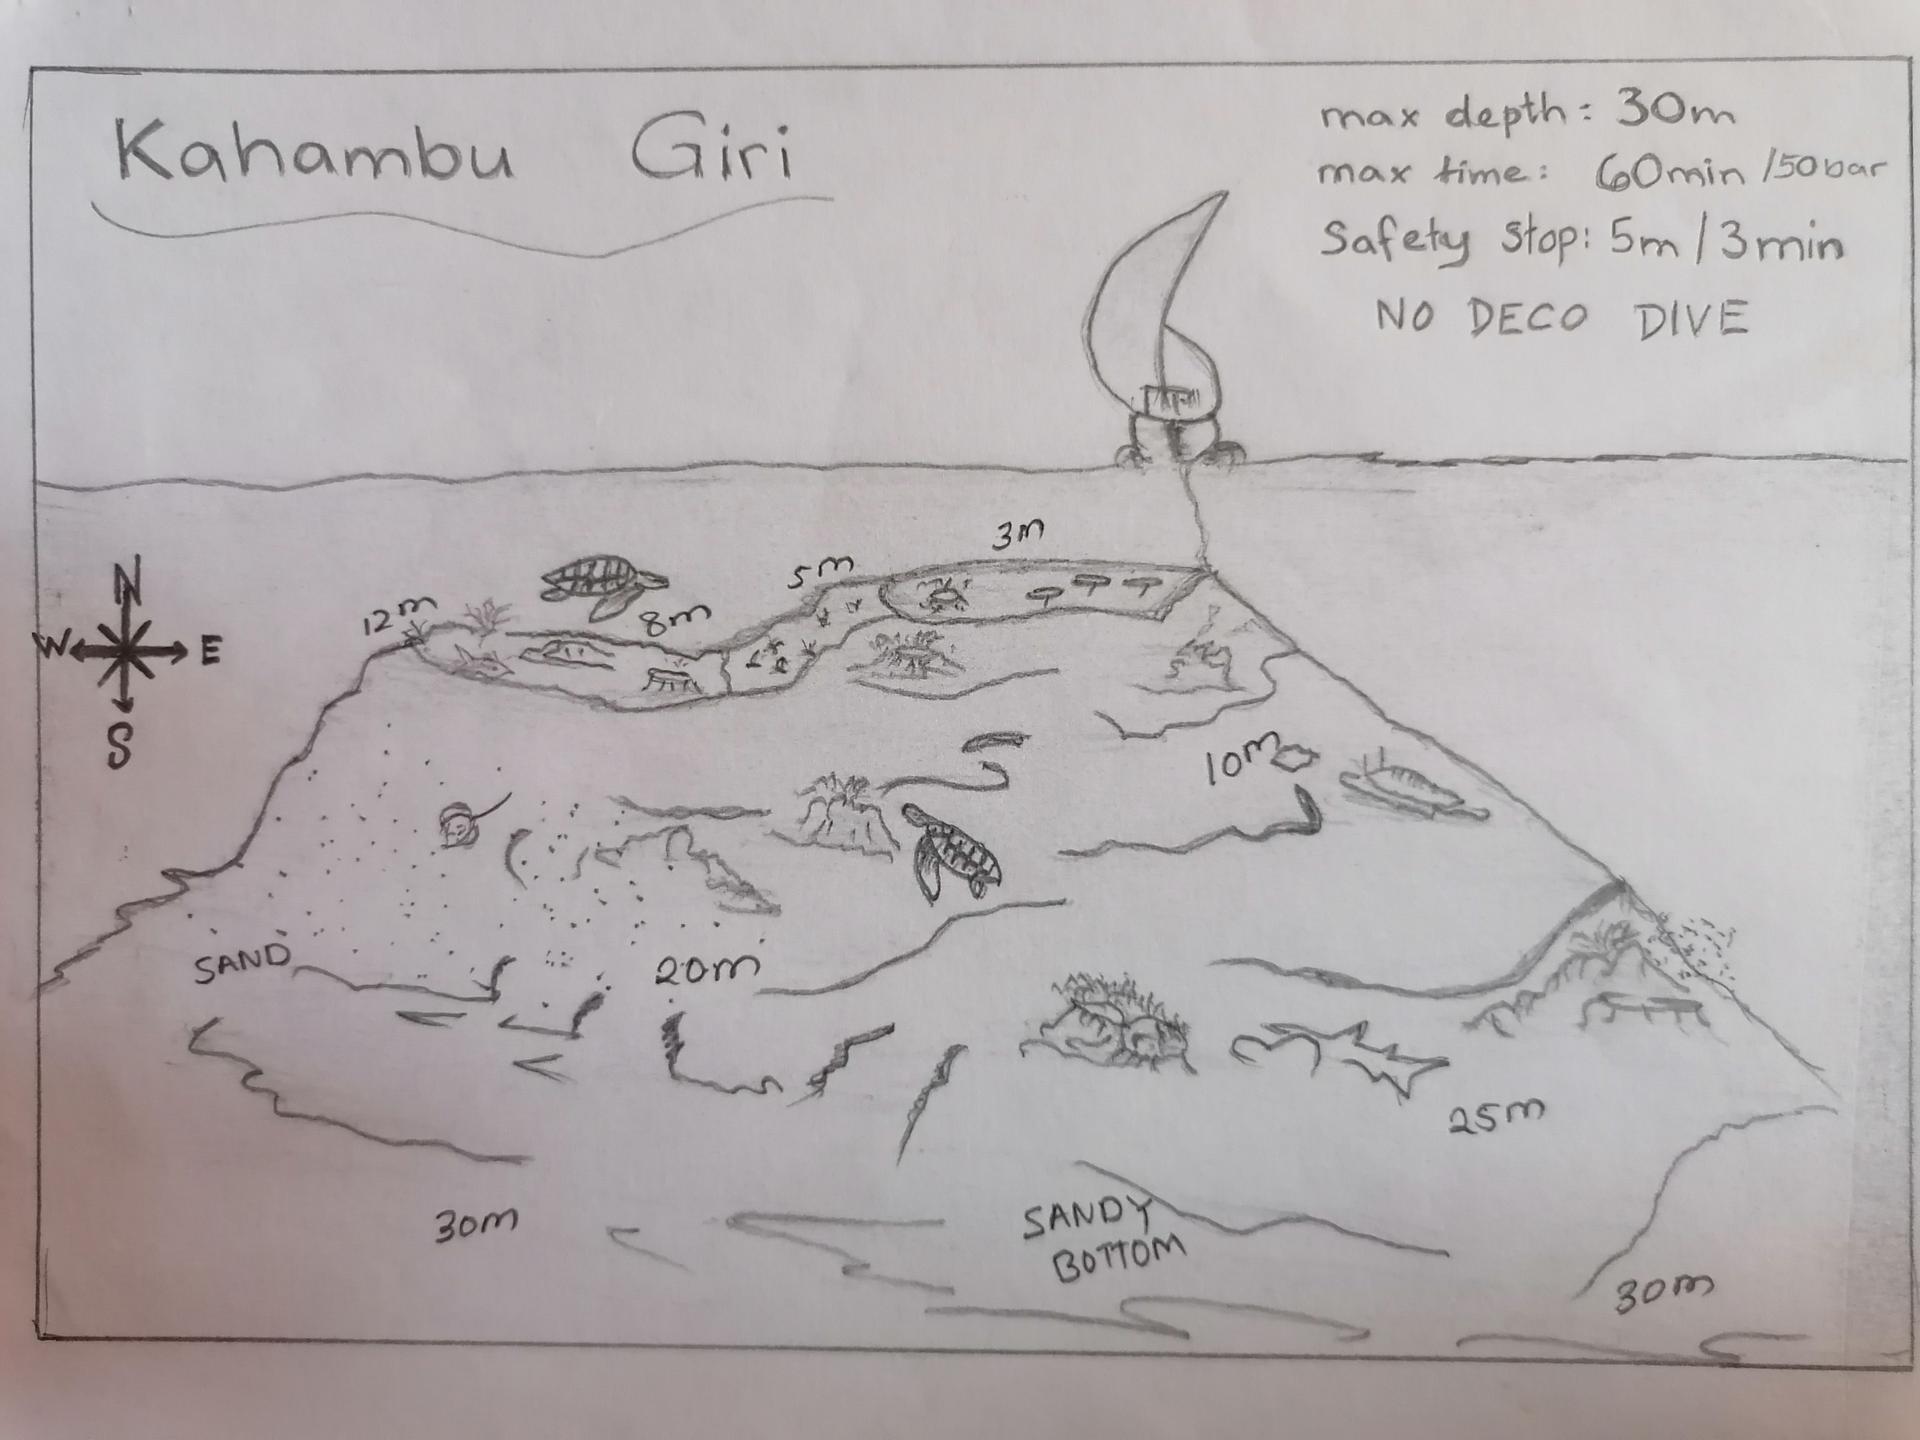 Kahambu Giri
max depth: 30m
max time: 60min /50bar
Safety Stop: 5m / 3min
NO DECO DIVE
3m
5m
12m
8m
N
W E
S
10m
SAND
20m
25m
30m
SANDY
BOTTOM
30m